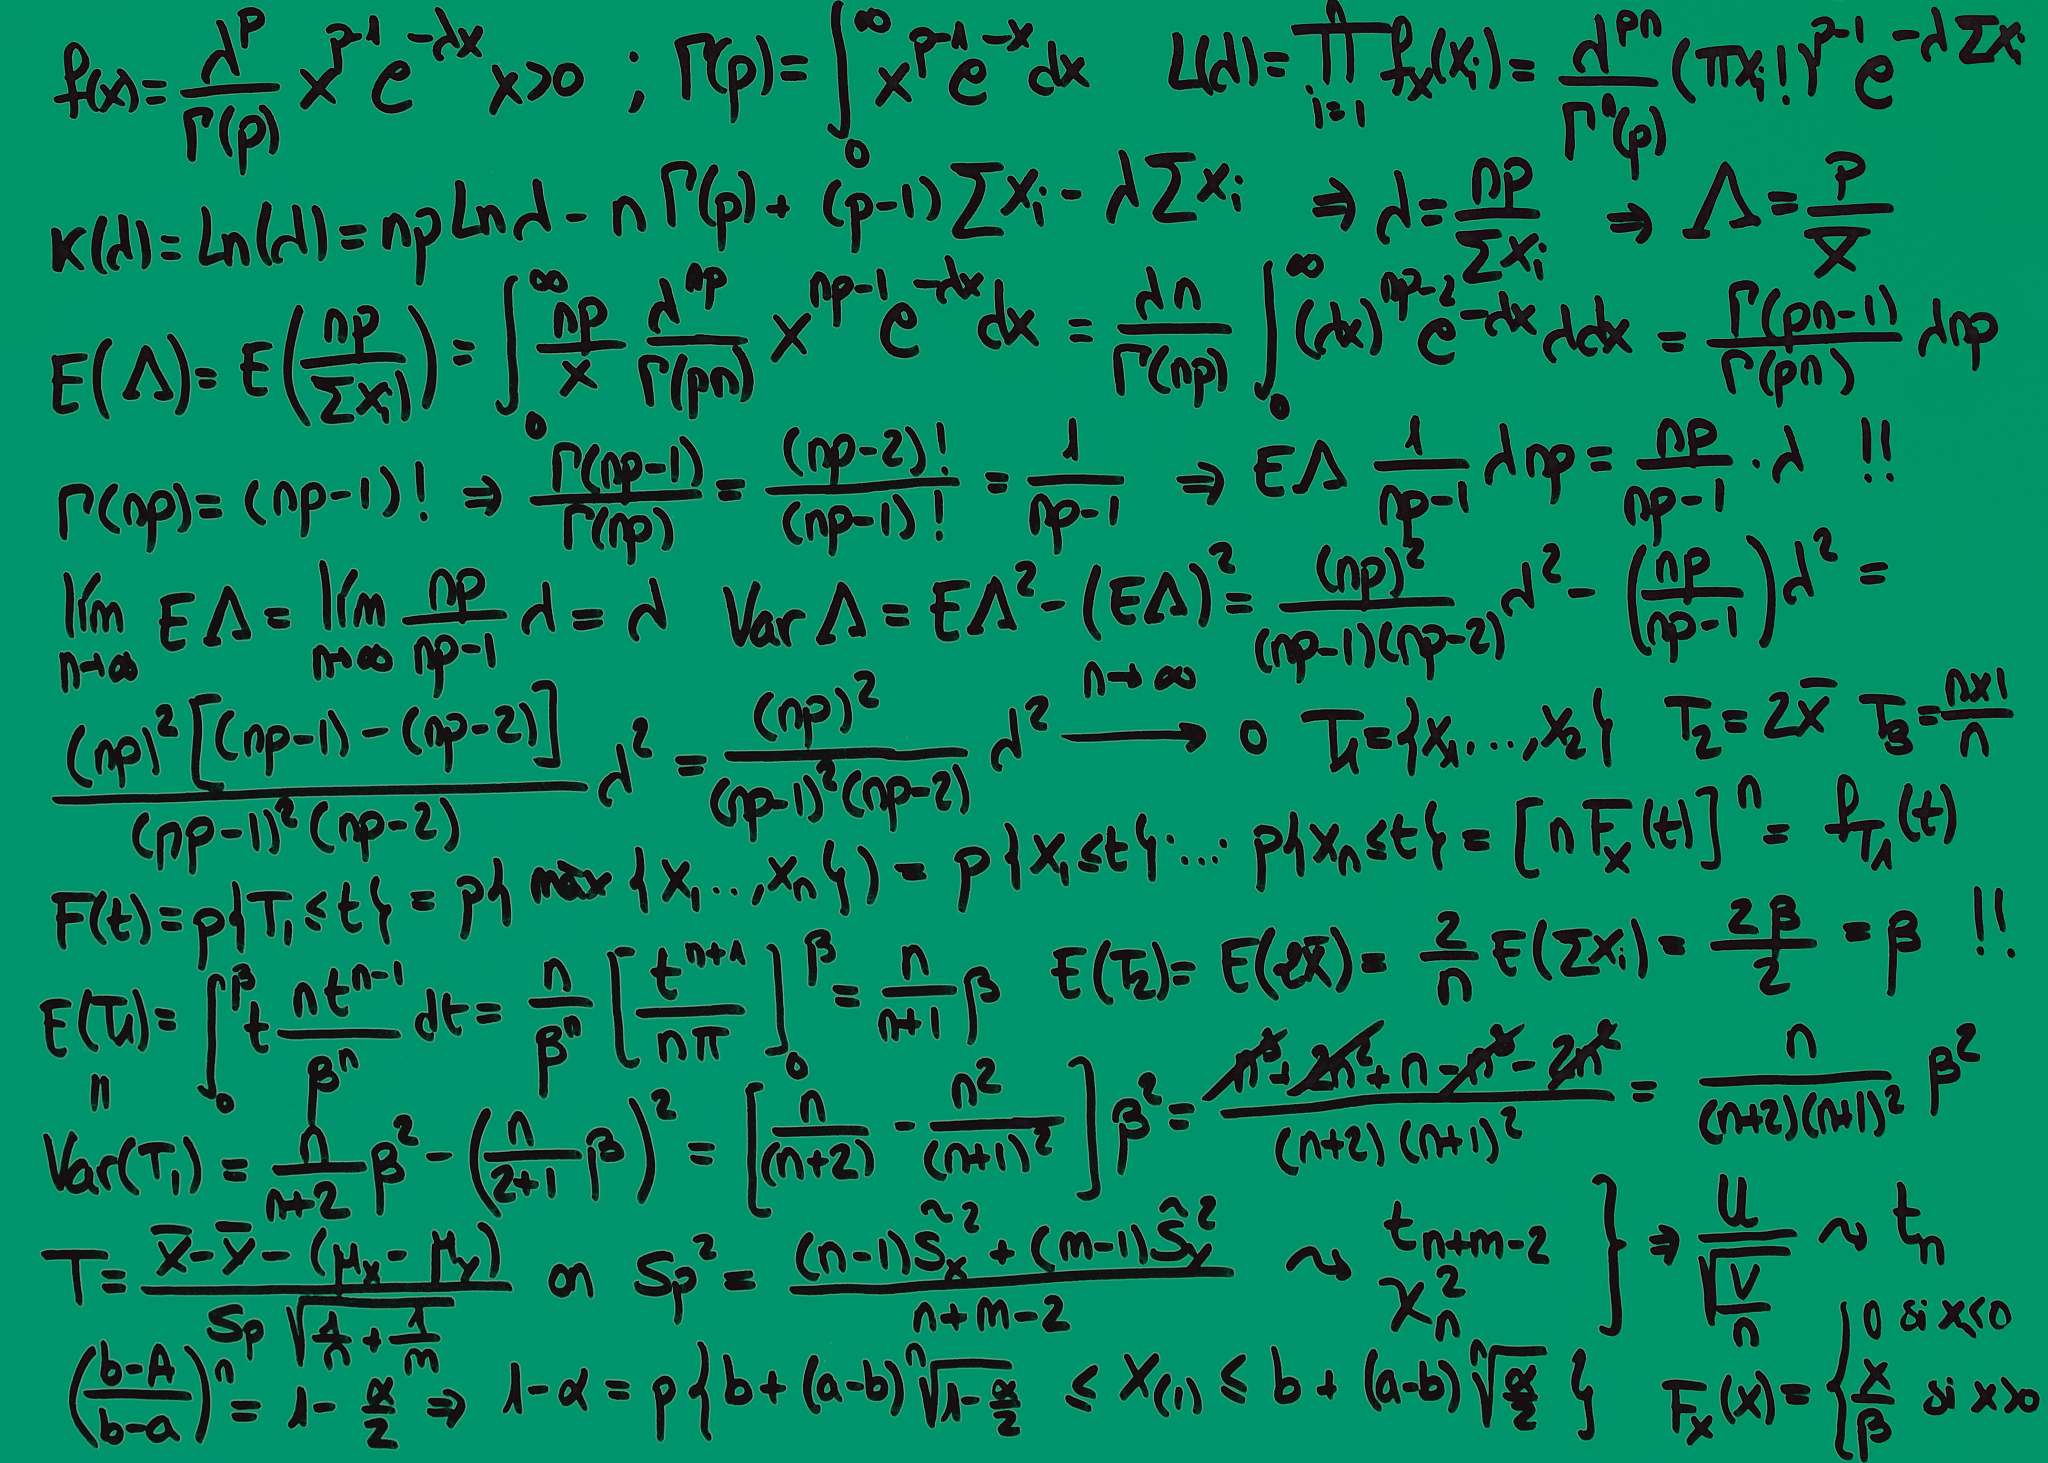 f(x) = λ^p/Γ(p) x^(p-1) e^(-λx) x>0 ; Γ(p) = ∫₀^∞ x^(p-1) e^(-x) dx L(λ) = ∏_{i=1}^n f_x(x_i) = λ^(pn)/Γ^n(p) (πx_i!)^(p-1) e^(-λΣx_i)
K(λ) = Ln(λ) = np Ln λ - n Γ(p) + (p-1) Σx_i - λΣx_i ⇒ λ = np/Σx_i ⇒ Λ = p/x̄
E(Λ) = E(np/Σx_i) = ∫₀^∞ np/x λ^(np)/Γ(pn) x^(np-1) e^(-λx) dx = λn/Γ(np) ∫₀^∞ (λx)^(np-2) e^(-λx) λdx = Γ(pn-1)/Γ(pn) λnp
Γ(np) = (np-1)! ⇒ Γ(np-1)/Γ(np) = (np-2)!/(np-1)! = 1/(np-1) ⇒ EΛ 1/(np-1) λnp = np/(np-1) · λ !!
lím_{n→∞} EΛ = lím_{n→∞} np/(np-1) λ = λ Var Λ = EΛ² - (EΛ)² = (np)²/((np-1)(np-2)) λ² - (np/(np-1)) λ² =
(np)² [(np-1) - (np-2)]/((np-1)² (np-2)) λ² = (np)²/((np-1)² (np-2)) λ² →^{n→∞} 0 T₁ = {x₁...,x₂} T₂ = 2x̄ T₃ = nx1/n
F(t) = p{T₁ ≤ t} = p{máx {x₁..,x_n}) = p{x₁ ≤ t}... p{x_n ≤ t} = [n F_x(t)]^n = f_{T₁}(t)
E(T₁) = ∫₀^β t nt^(n-1)/β^n dt = n/β^n [t^(n+1)/nπ]₀^β = n/(n+1) β E(T₂) = E(2x̄) = 2/n E(Σx_i) = 2β/2 = β !!
n
Var(T₁) = n/(n+2) β² - (n/(2+1) β)² = [n/(n+2) - n²/(n+1)²] β² = (n³ + 2n² + n - n³ - 2n²)/((n+2)(n+1)²) = n/((n+2)(n+1)²) β²
T = (x̄ - ȳ - (μ_x - μ_y))/(S_p √(1/n + 1/m)) on S_p² = ((n-1)S̃_x² + (m-1)Ŝ_y²)/(n+m-2) ~ t_{n+m-2} χ_n² } ⇒ U/√(V/n) ~ t_n
((b-A)/(b-a))^n = 1 - α/2 ⇒ 1-α = p{b + (a-b) ⁿ√(1-α/2) ≤ X_(1) ≤ b + (a-b) ⁿ√(α/2)} F_x(x) = { 0 si x<0
x/β si x>0